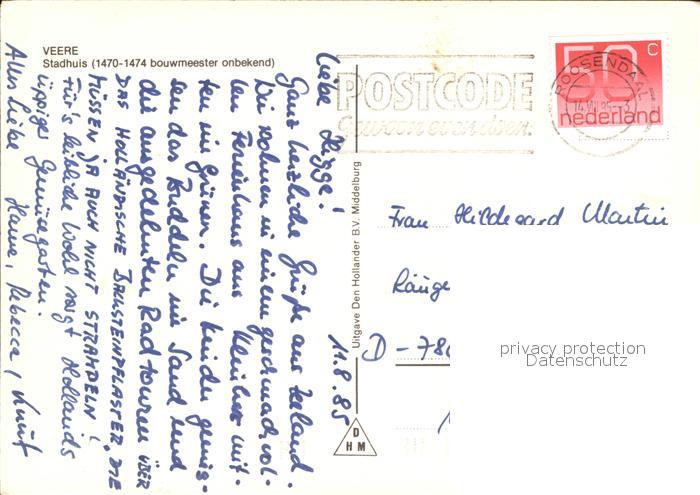 VEERE
Stadhuis (1470-1474 bouwmeester onbekend)
11.8.85
Liebe Hügge!
Ganz herzliche Grüße aus Zeeland.
Wir wohnen in einem geschmackvol-
len Ferienhaus aus Klinker mit-
ten im Grünen. Die Kinder genies-
sen das Buddeln im Sand und
die ausgedehnten Radtouren ÜBER
DAS HOLLÄNDISCHE BACKSTEINPFLASTER. WIR
MÜSSEN JA AUCH NICHT STRAMPELN!
Für's leibliche Wohl sorgt Hollands
üppiger Gemüsegarten.
Alles Liebe Hanne, Rebecca, Knut
Uitgave Den Hollander B.V. Middelburg
D
HM
POSTCODE
Gewoon even doen.
ROOSENDAAL
50 c
nederland
Frau Hildegard Martin
D-780
privacy protection
Datenschutz